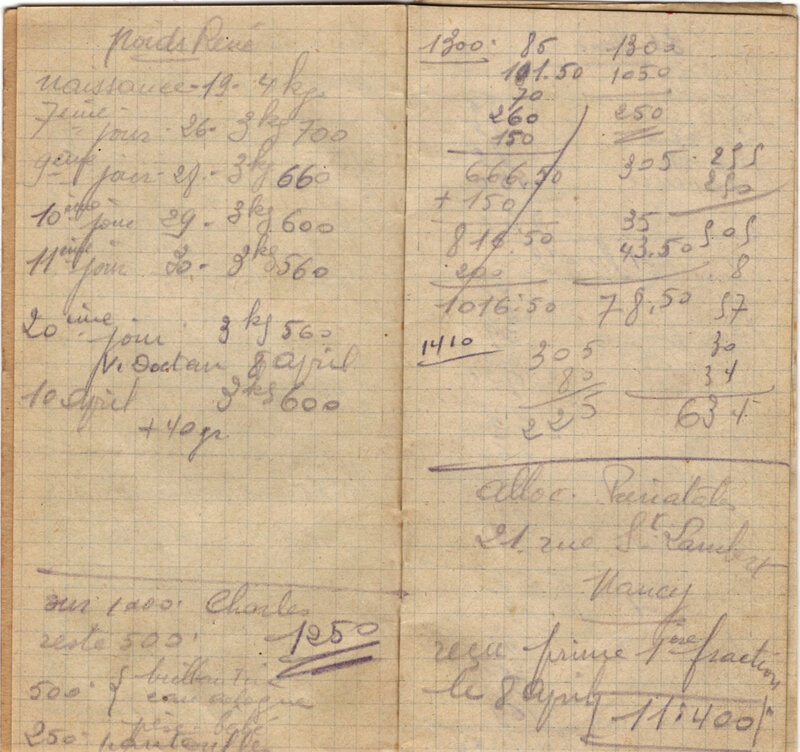 Poids René
naissance - 19 - 4 kg
7ème jour - 26 - 3 kg 700
9ème jour - 28 - 3 kg 660
10ème jour 29 - 3 kg 600
11ème jour 30 - 3 kg 560
20ième jour 3 kg 560
8 april
10 april 3 kg 600
+ 40 gr
sur 1000 Charles
reste 500 1250
500
250 pantoufles
1300 85 1300
101.50 1050
70
260 250
150
666.50 305 255
+ 150 250
816.50 35 505
200 43.50 8
1016.50 78.50 57
1410 305 30
80 34
225 634
alloc.
21 rue St Lambert
Nancy
reçu prime 1ère fraction
le 8 april 11.400